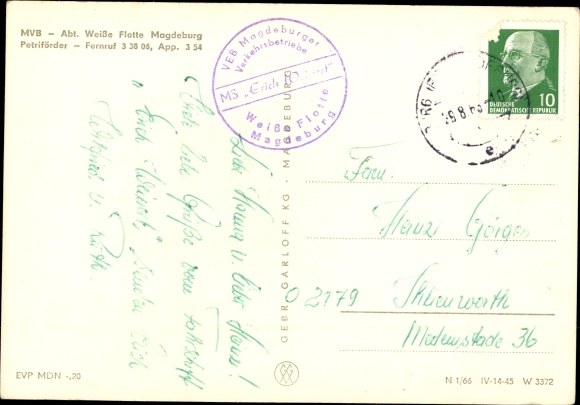 MVB – Abt. Weiße Flotte Magdeburg
Petriförder – Fernruf 3 38 06, App. 3 54
VEB Magdeburger
Verkehrsbetriebe
MS „Erich
Weiße Flotte
Magdeburg
DEUTSCHE
DEMOKRATISCHE REPUBLIK 10
Liebe Hanna u. lieber Heinz!
Liebe Grüße vom Fahrschiff
Erich Weinert senden Euch
u. Ruth.
GEBR. GARLOFF KG · MAGDEBURG
Fam.
Heinz Görgen
O 2179
Medemstade 36
EVP MDN -,20
N 1/66 IV-14-45 W 3372